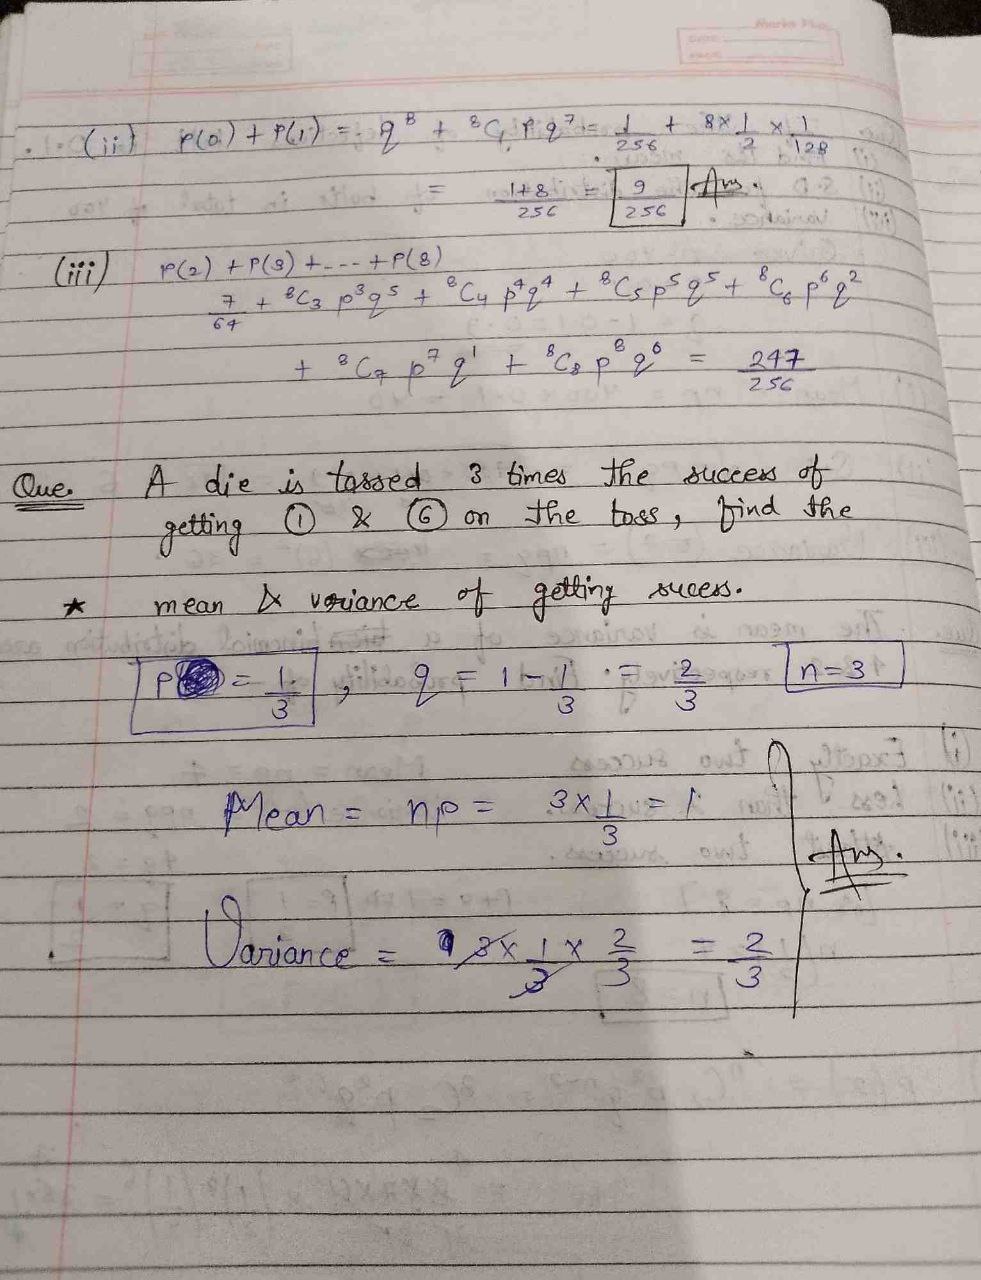 (ii) P(0) + P(1) = q⁸ + ⁸C₁ p q⁷ = 1/256 + 8 × 1/2 × 1/128
= 1+8/256 = 9/256 Ans.
(iii) P(2) + P(3) + --- + P(8)
7/64 + ⁸C₃ p³q⁵ + ⁸C₄ p⁴q⁴ + ⁸C₅ p⁵ q⁵ + ⁸C₆ p⁶ q²
+ ⁸C₇ p⁷ q¹ + ⁸C₈ p⁸ q⁰ = 247/256
Que. A die is tossed 3 times the success of
getting ① & ⑥ on the toss, find the
* mean & variance of getting sucess.
P = 1/3 , q = 1 - 1/3 = 2/3 n = 3
Mean = np = 3 × 1/3 = 1
Ans.
Variance = 3 × 1/3 × 2/3 = 2/3